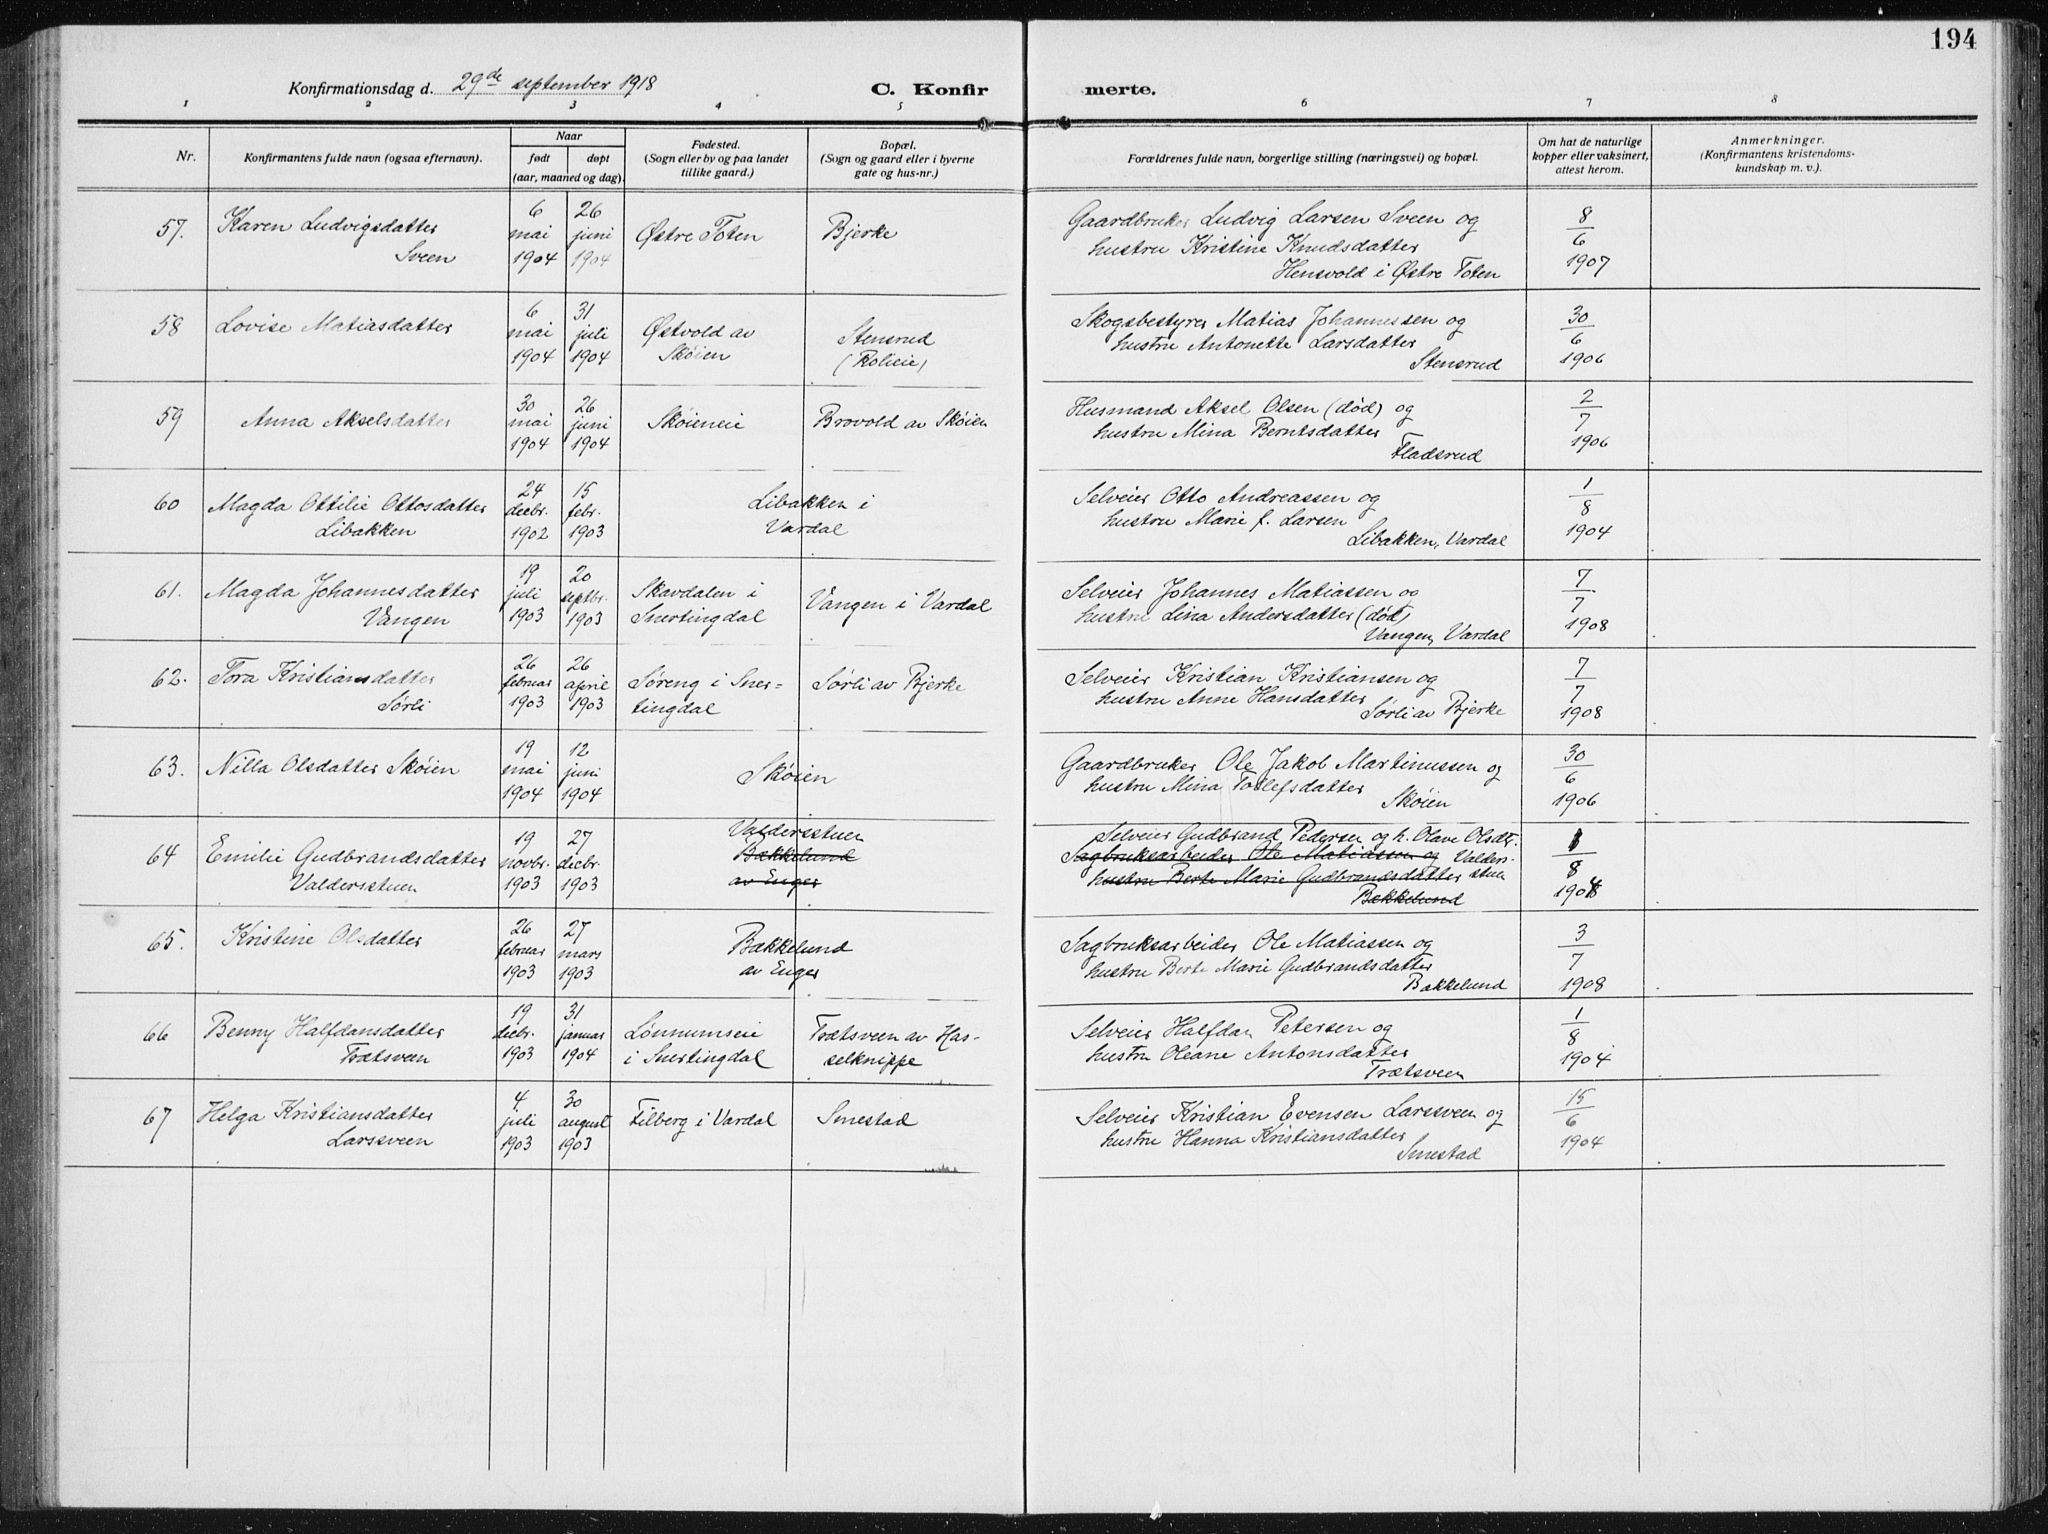 194
Konfirmationsdag d. 29de september 1918
C. Konfirmerte.
1 2 3 4 5 6 7 8
Nr.
Konfirmantens fulde navn (ogsaa efternavn).
Naar
født
døpt
(aar, maaned og dag).
Fødested.
(Sogn eller by og paa landet
tillike gaard.)
Bopæl.
(Sogn og gaard eller i byerne
gate og hus-nr.)
Forældrenes fulde navn, borgerlige stilling (næringsvei) og bopæl.
Om hat de naturlige
kopper eller vaksinert,
attest herom.
Anmerkninger.
(Konfirmantens kristendoms-
kundskap m. v.).
57.
Karen Ludvigsdatter
Sveen
6
mai
1904
26
juni
1904
Østre Toten
Bjerke
Gaardbruker Ludvig Larsen Sveen og
hustru Kristine Knudsdatter
Hensvold i Østre Toten
8
6
1907
58
Lovise Matiasdatter
6
mai
1904
31
juli
1904
Østvold av
Skøien
Stensrud
(Kolieie)
Skogsbestyrer Matias Johannessen og
hustru Antonette Larsdatter
Stensrud
30
6
1906
59
Anna Akselsdatter
30
mai
1904
26
juni
1904
Skøieneie
Brovold av Skøien
Husmand Aksel Olsen (død) og
hustru Mina Berntsdatter
Fladsrud
2
7
1906
60
Magda Ottilie Ottosdatter
Libakken
24
decbr.
1902
15
febr.
1903
Libakken i
Vardal
Selveier Otto Andreassen og
hustru Marie f. Larsen
Libakken, Vardal
1
8
1904
61.
Magda Johannesdatter
Vangen
19
juli
1903
20
septbr.
1903
Skavdalen i
Snertingdal
Vangen i Vardal
Selveier Johannes Matiassen og
hustru Lina Andersdatter (død)
Vangen, Vardal
7
7
1908
62.
Tora Kristiansdatter
Sørli
26
februar
1903
26
april
1903
Søreng i Sner-
tingdal
Sørli av Bjerke
Selveier Kristian Kristiansen og
hustru Anne Hansdatter
Sørli av Bjerke
7
7
1908
63.
Nilla Olsdatter Skøien
19
mai
1904
12
juni
1904
Skøien
Gaardbruker Ole Jakob Martinussen og
hustru Mina Tollefsdatter
Skøien
30
6
1906
64
Emilie Gudbrandsdatter
Valdersstuen
19
novbr.
1903
27
decbr.
1903
Valdersstuen
Bækkelund
av Enger
Selveier Gudbrand Pedersen og h. Olave Olsdtr.
Sagbruksarbeider Ole Matiassen og Valders-
hustru Berte Marie Gudbrandsdatter stuen
Bækkelund
1
8
1904
65.
Kristine Olsdatter
26
februar
1903
27
mars
1903
Bækkelund
av Enger
Sagbruksarbeider Ole Matiassen og
hustru Berte Marie Gudbrandsdatter
Bækkelund
3
7
1908
66
Benny Halfdansdatter
Trætsveen
19
decbr.
1903
31
januar
1904
Lønnumseie
i Snertingdal
Trætsveen av Has-
selknippe
Selveier Halfdan Petersen og
hustru Oleane Antonsdatter
Trætsveen
1
8
1904
67
Helga Kristiansdatter
Larssveen
4
juli
1903
30
august
1903
Filberg i Vardal
Smestad
Selveier Kristian Evensen Larssveen og
hustru Hanna Kristiansdatter
Smestad
15
6
1904